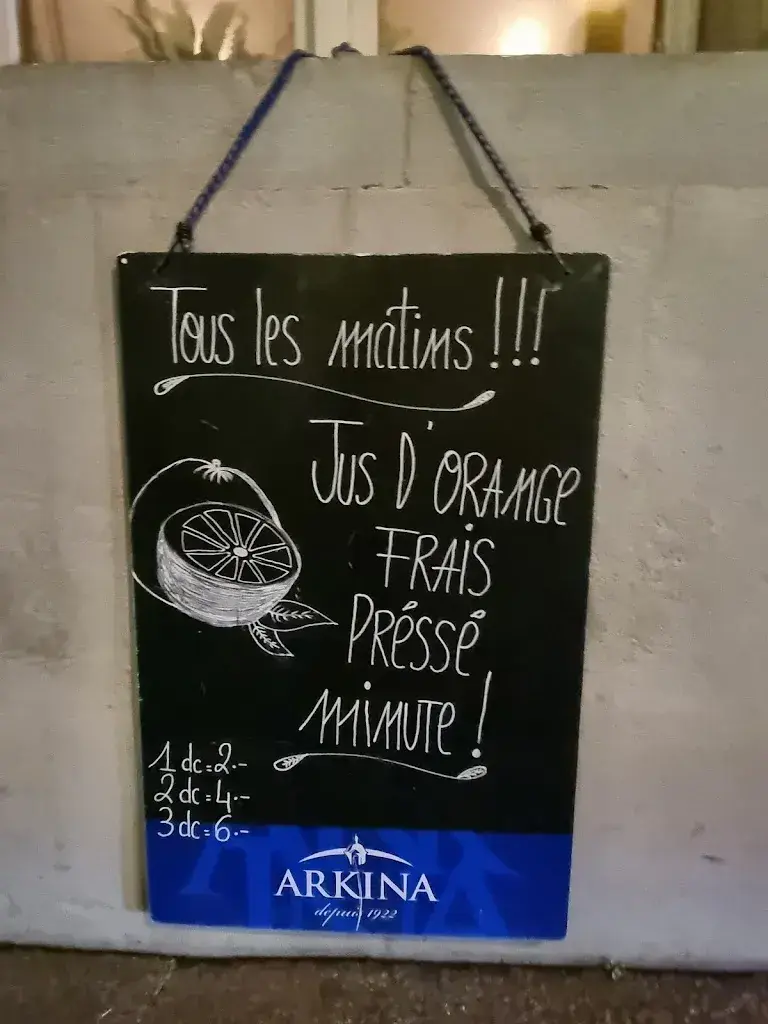 Tous les matins !!!
Jus D'ORANGE
FRAIS
PRÉSSÉ
MINUTE !
1 dc = 2.-
2 dc = 4.-
3 dc = 6.-
ARKINA
depuis 1922